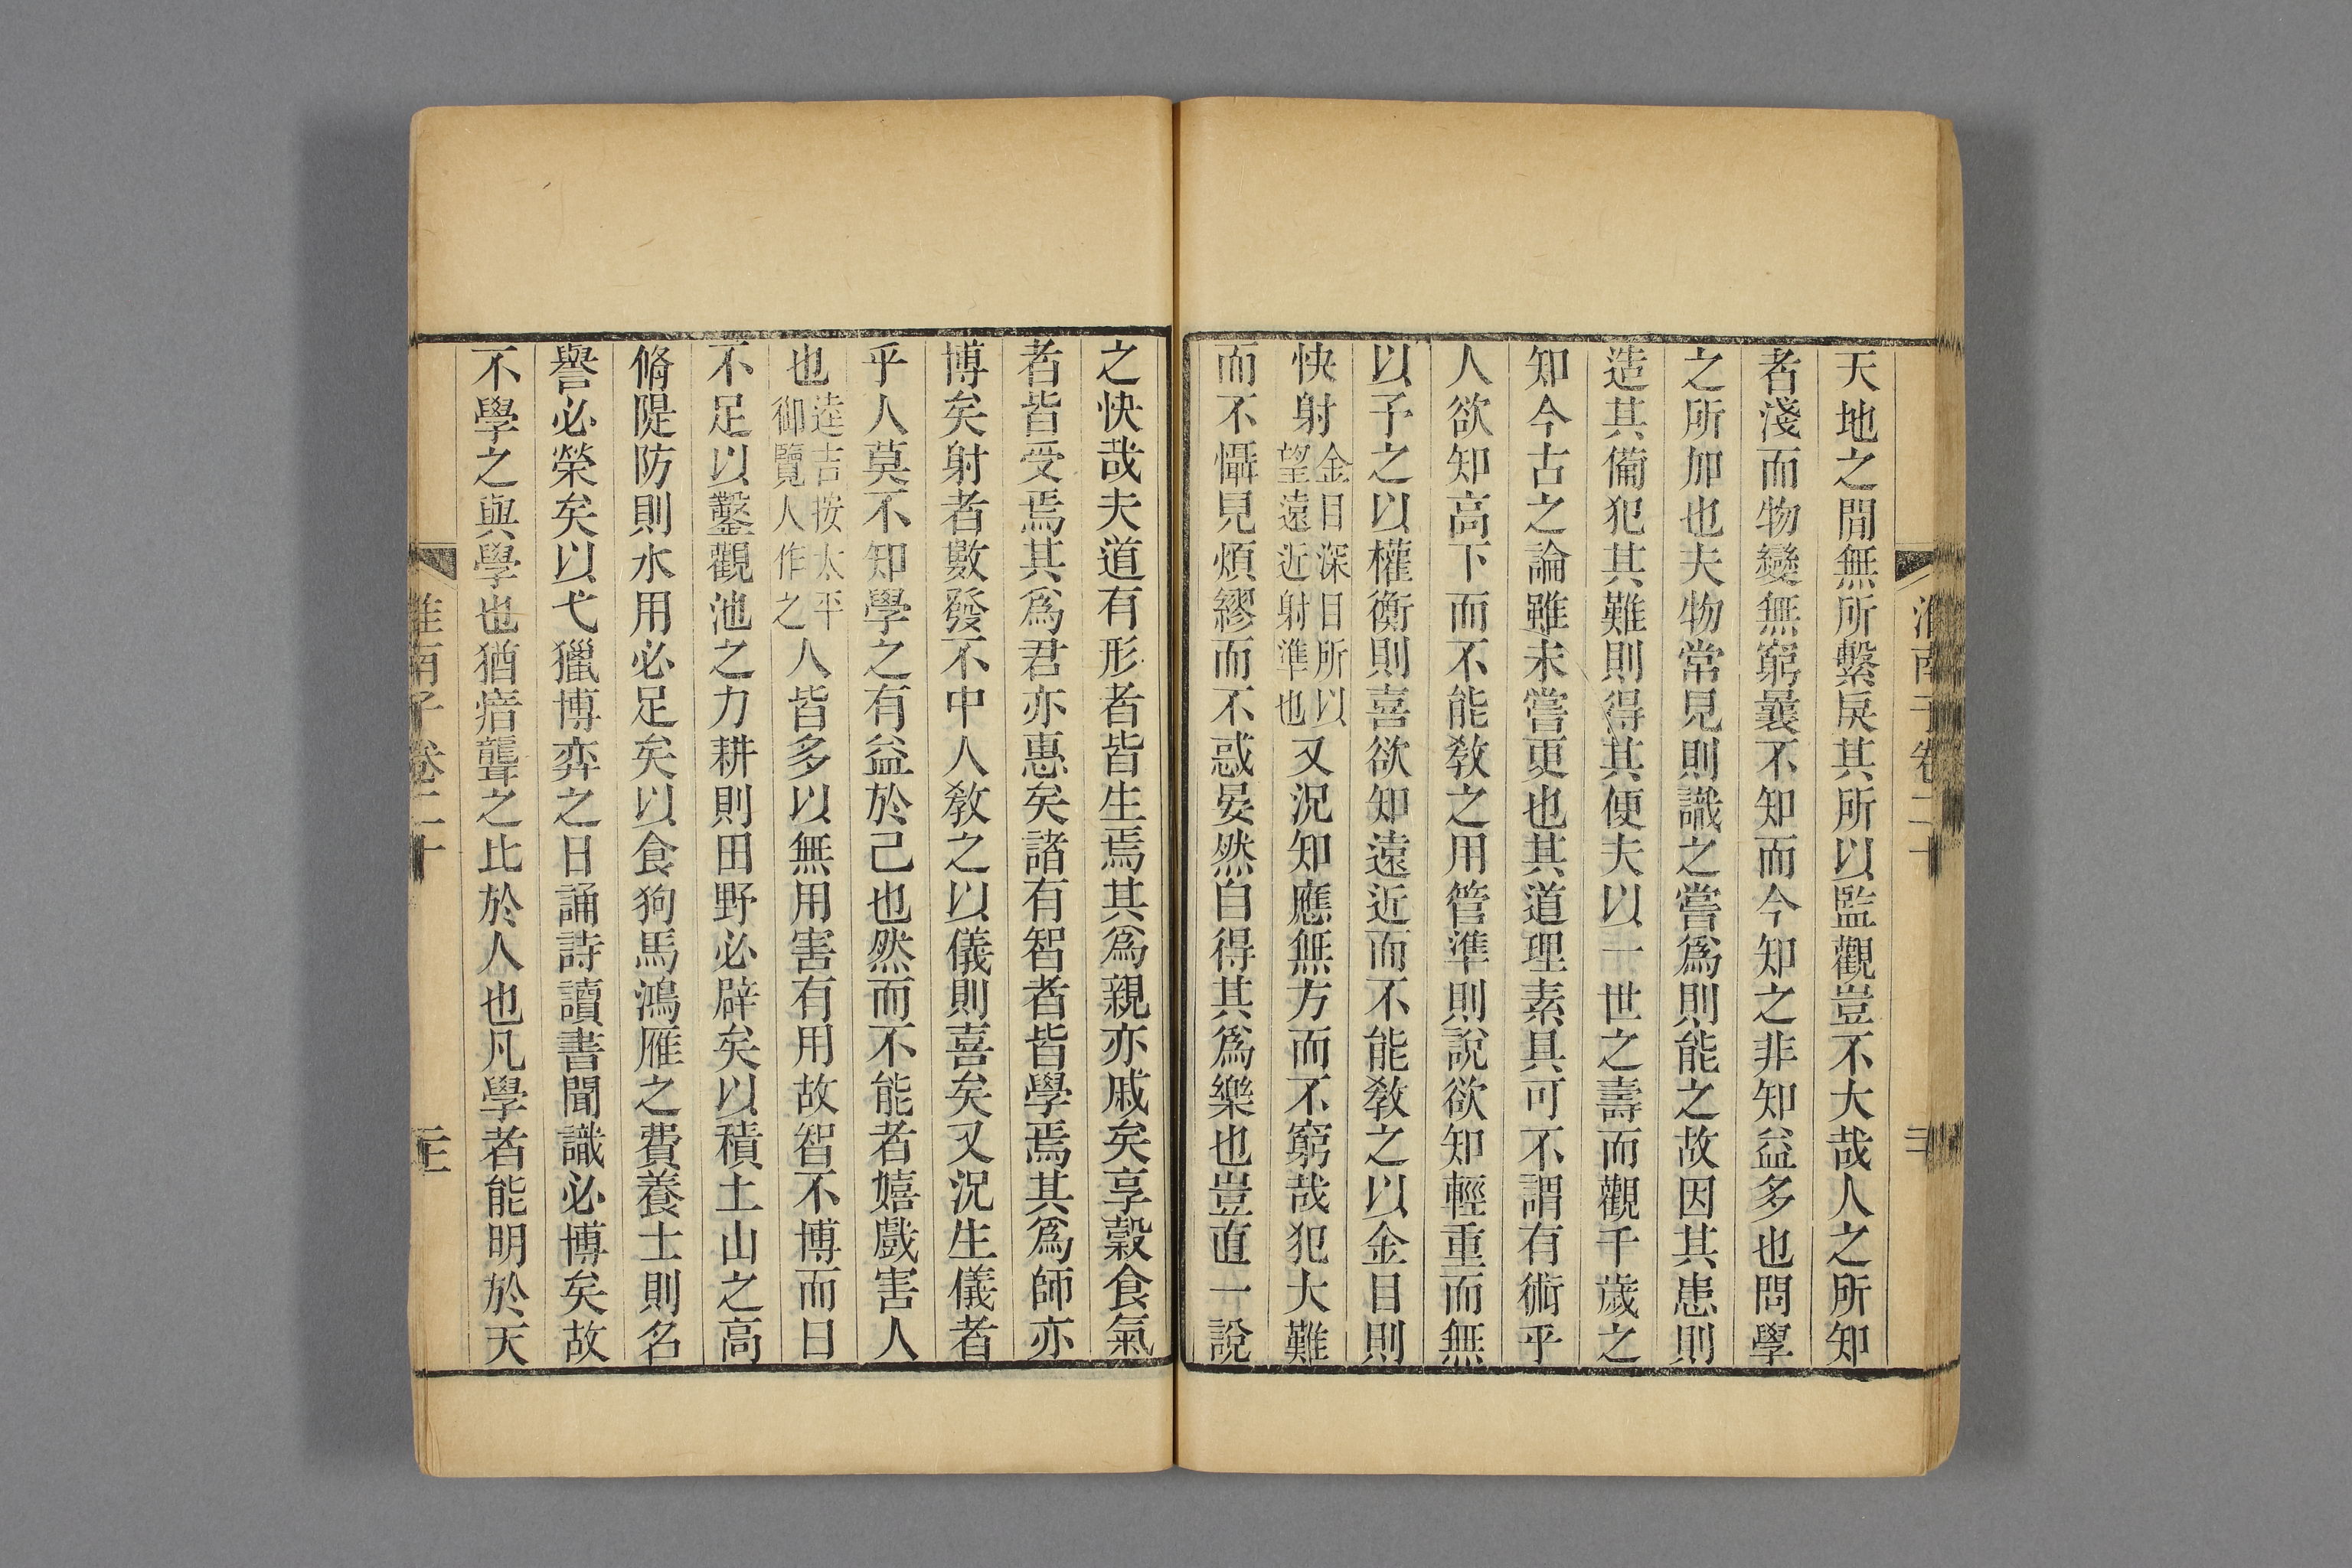 淮南子卷二十
天地之閒無所繫戾其所以監觀豈不大哉人之所知
者淺而物變無窮曩不知而今知之非知益多也問學
之所加也夫物常見則識之嘗爲則能之故因其患則
造其備犯其難則得其便夫以一世之壽而觀千歲之
知今古之論雖未嘗更也其道理素具可不謂有術乎
人欲知高下而不能敎之用管準則說欲知輕重而無
以予之以權衡則喜欲知遠近而不能敎之以金目則
快射金目深目所以望遠近射準也又況知應無方而不窮哉犯大難
而不懾見煩繆而不惑晏然自得其爲樂也豈直一說
之快哉夫道有形者皆生焉其爲親亦戚矣享穀食氣
者皆受焉其爲君亦惠矣諸有智者皆學焉其爲師亦
博矣射者數發不中人敎之以儀則喜矣又況生儀者
乎人莫不知學之有益於己也然而不能者嬉戲害人
也逵吉按太平御覽人作之人皆多以無用害有用故智不博而日
不足以鑿觀池之力耕則田野必辟矣以積土山之高
脩隄防則水用必足矣以食狗馬鴻雁之費養士則名
譽必榮矣以弋獵博弈之日誦詩讀書聞識必博矣故
不學之與學也猶瘖聾之比於人也凡學者能明於天
淮南子卷二十